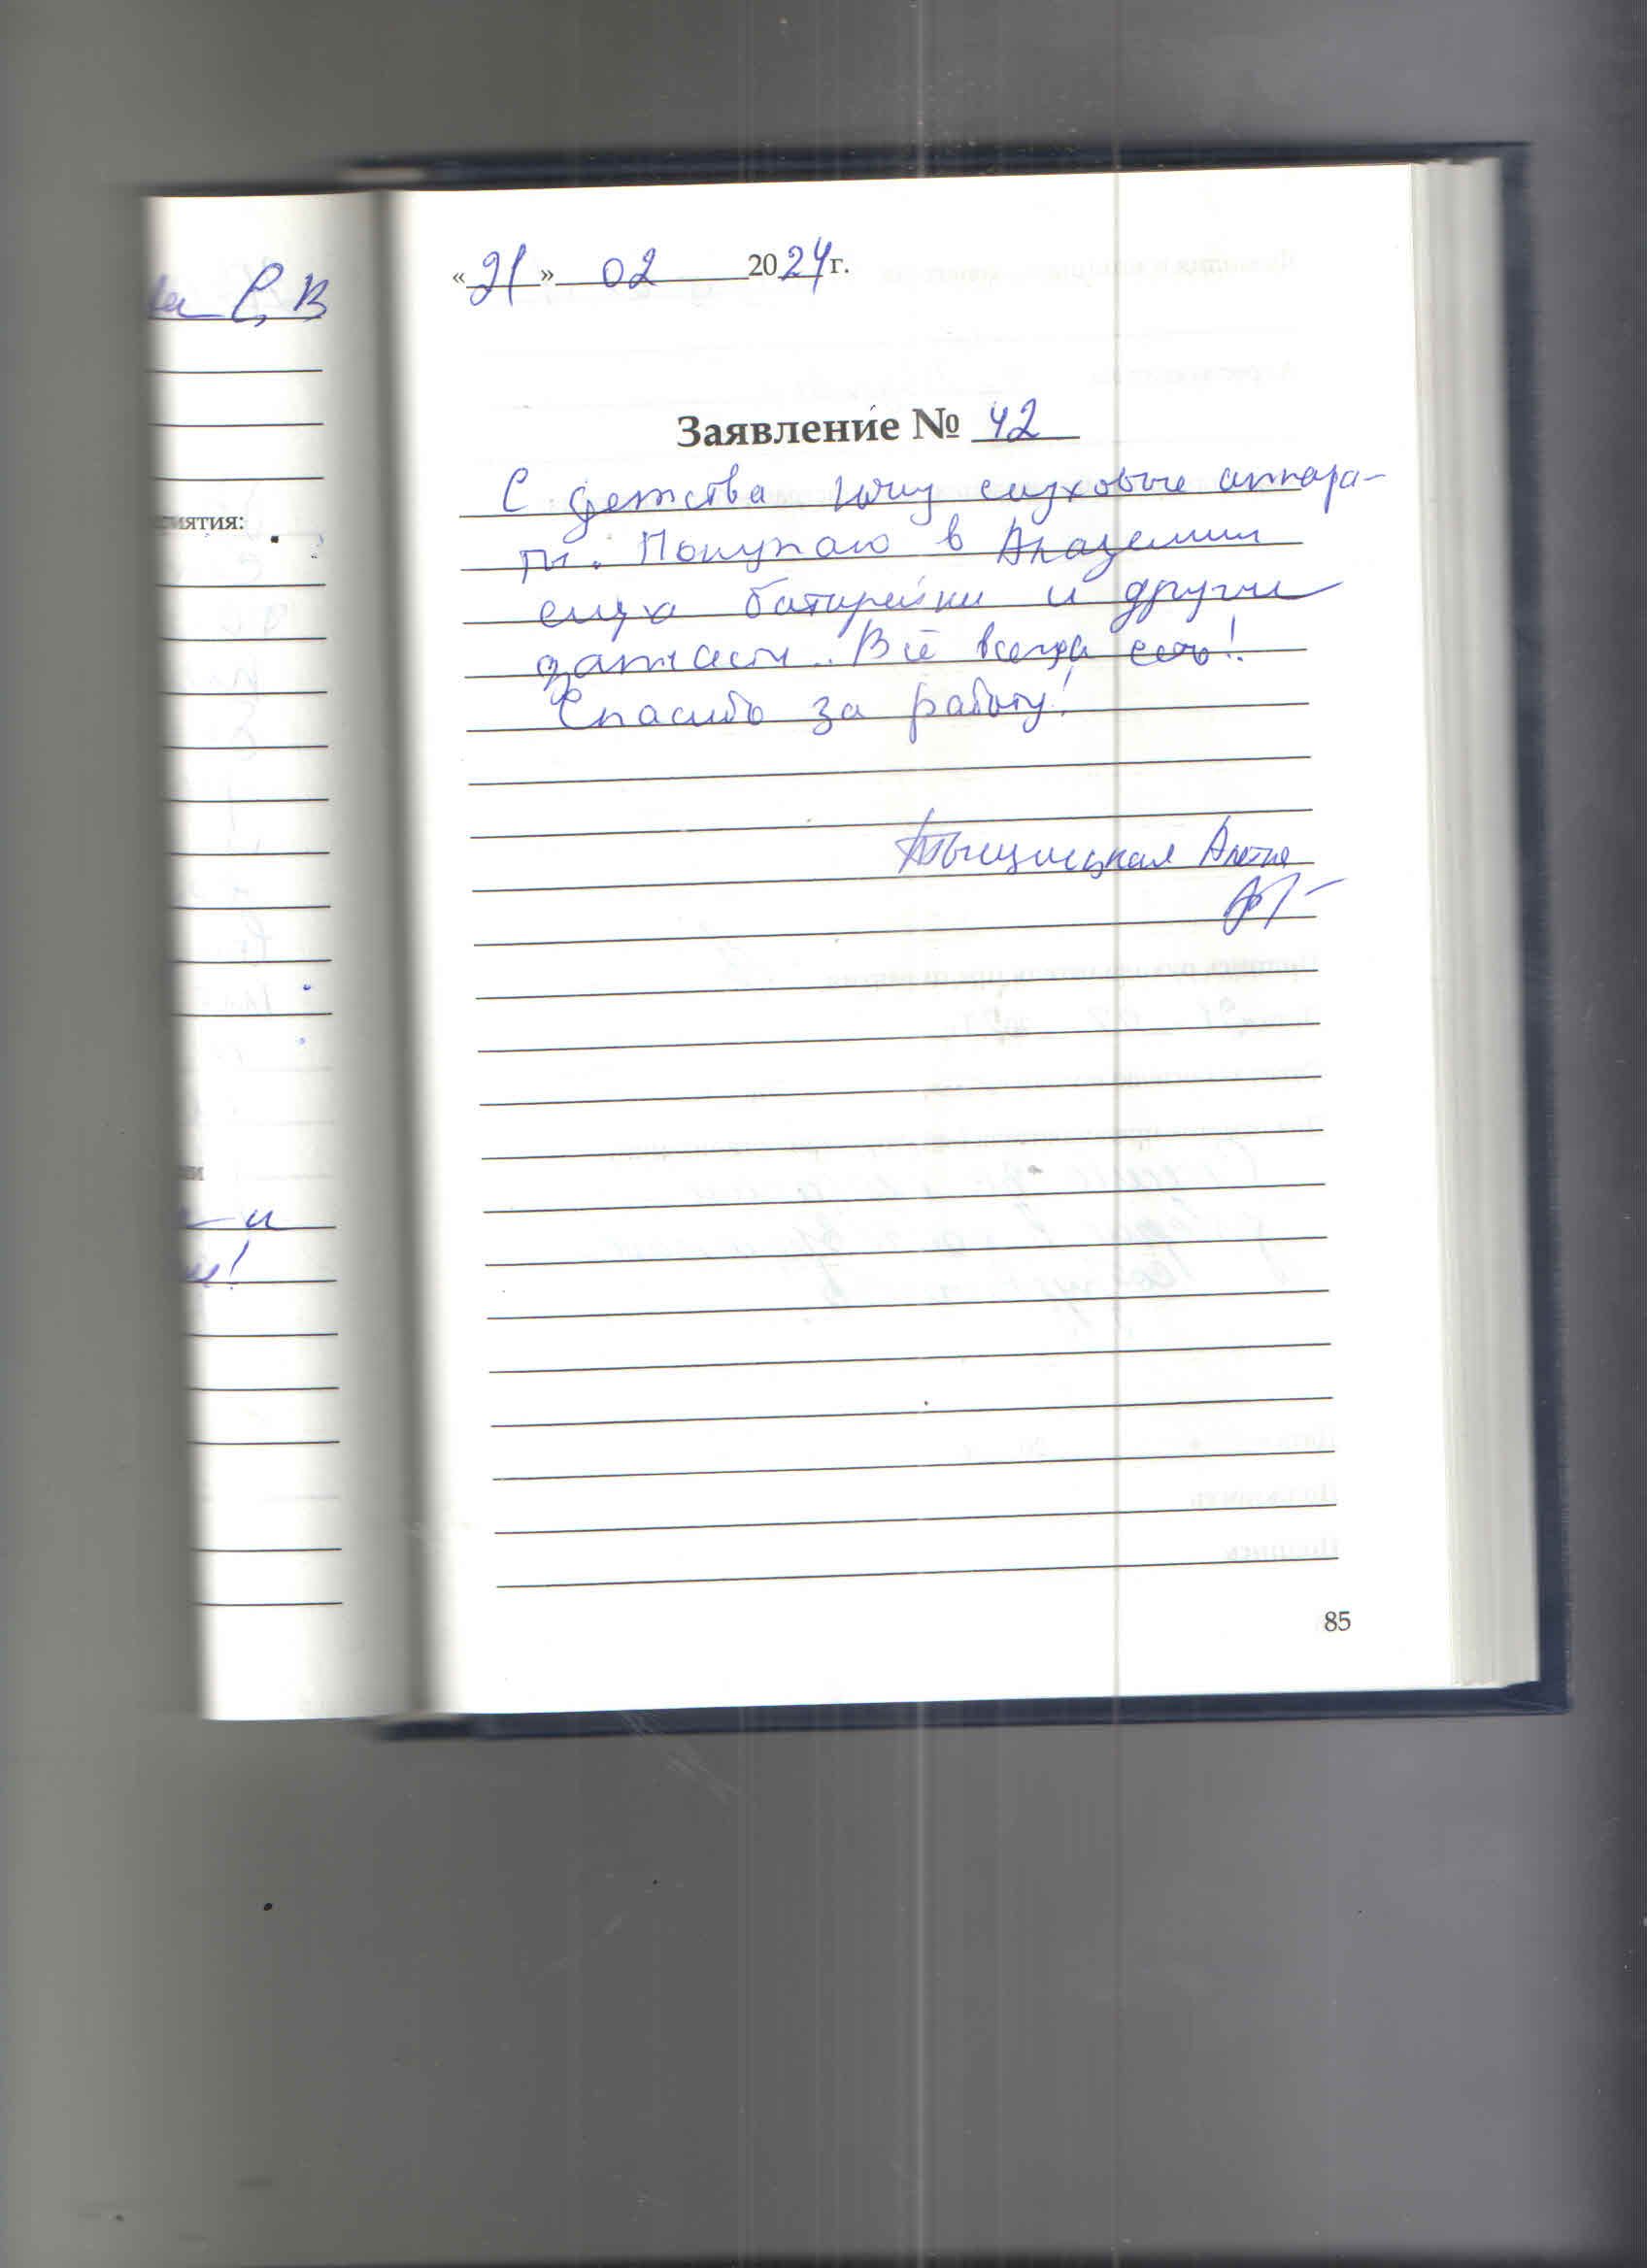 «21» 02 2024 г.
Заявление № 42
С детства ношу слуховые аппара-
ты. Покупаю в Академии
слуха батарейки и другие
запчасти. Всё всегда есть!
Спасибо за работу!
85
С, В
иятия:
и